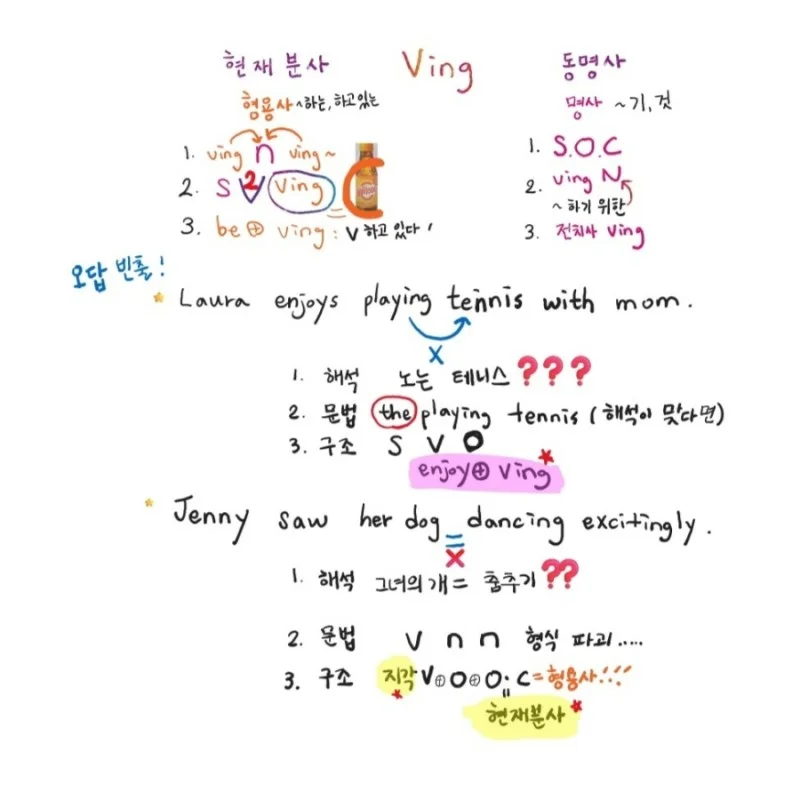 현재분사 Ving 동명사
형용사 ~하는, 하고있는 명사 ~기, 것
1. ving n ving~ 1. S.O.C
2. S V2 Ving C 2. ving N
~하기 위한
3. be⊕ ving : V 하고 있다! 3. 전치사 Ving
오답 빈출!
* Laura enjoys playing tennis with mom.
X
1. 해석 노는 테니스 ???
2. 문법 the playing tennis (해석이 맞다면)
3. 구조 S V O
enjoy⊕ Ving
* Jenny saw her dog = dancing excitingly.
X
1. 해석 그녀의 개 = 춤추기 ??
2. 문법 V n n 형식 파괴.....
3. 구조 지각V⊕O⊕O·C=형용사!!!
=
현재분사